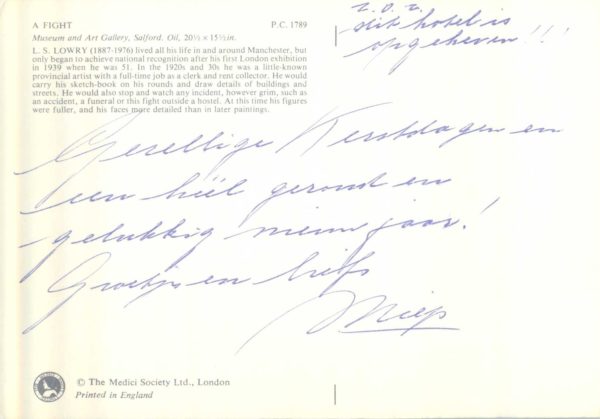 A FIGHT P.C. 1789
Museum and Art Gallery, Salford. Oil, 20½ × 15½in.
L. S. LOWRY (1887-1976) lived all his life in and around Manchester, but
only began to achieve national recognition after his first London exhibition
in 1939 when he was 51. In the 1920s and 30s he was a little-known
provincial artist with a full-time job as a clerk and rent collector. He would
carry his sketch-book on his rounds and draw details of buildings and
streets. He would also stop and watch any incident, however grim, such as
an accident, a funeral or this fight outside a hostel. At this time his figures
were fuller, and his faces more detailed than in later paintings.
z.o.z.
dit hotel is
opgeheven!!!
Gezellige Kerstdagen en
een héél gezond en
gelukkig nieuw jaar!
Groetjes en liefs
Miep
© The Medici Society Ltd., London
Printed in England